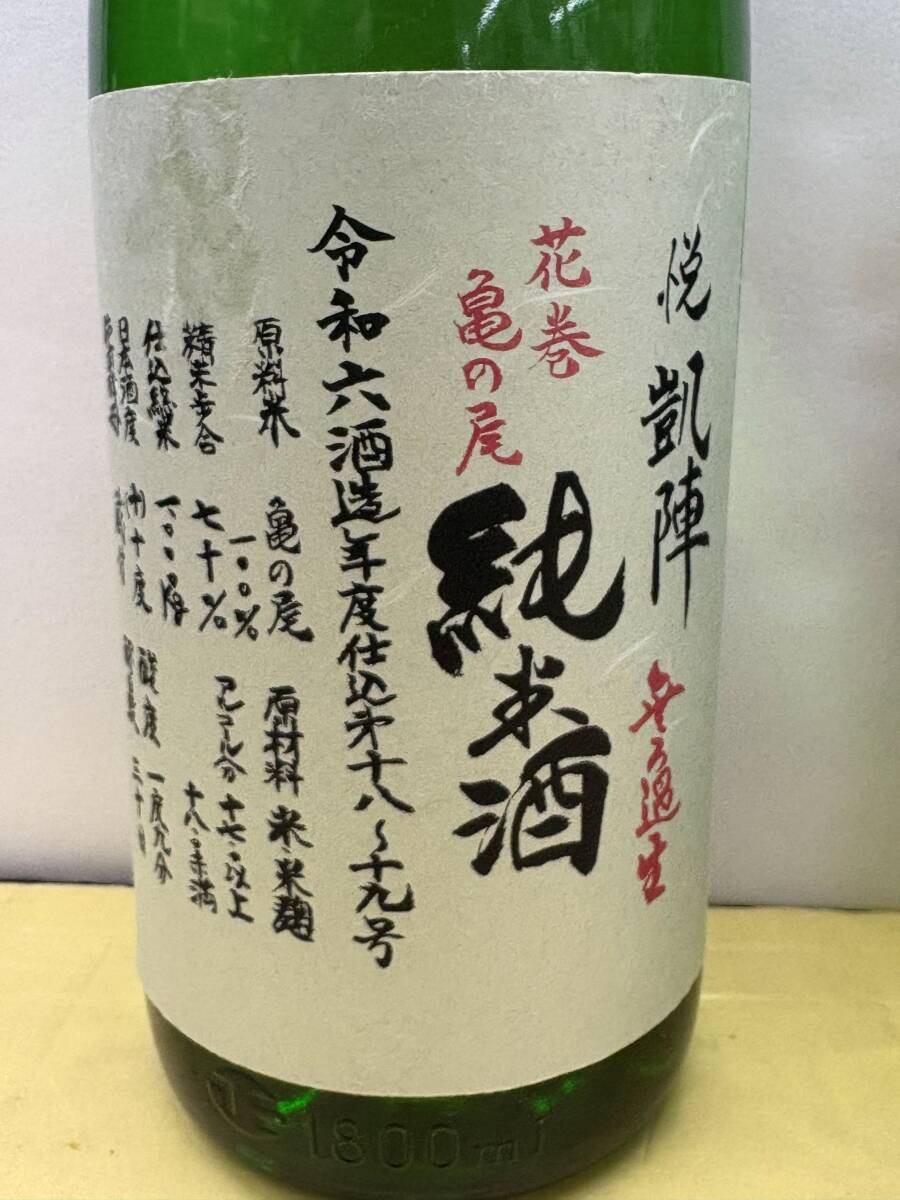 悦 凱陣
無ろ過生
花巻
亀の尾
純米酒
令和六酒造年度仕込第十八〜十九号
原料米 亀の尾 一〇〇%
原材料 米・米麹
精米歩合 七十%
アルコール分 十七・〇以上
十八・〇未満
仕込総米 一〇〇〇kg
日本酒度 (+)十度 酸度 一度九分
1800ml